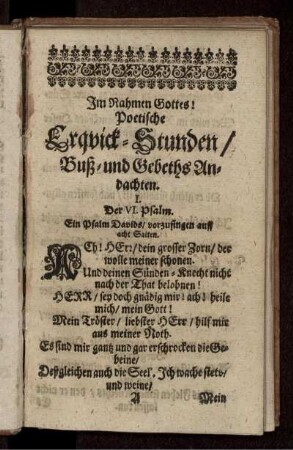 Im Nahmen Gottes!
Poetische
Erqvick-Stunden/
Buß- und Gebeths An-
dachten.
I.
Der VI. Psalm.
Ein Psalm Davids/ vorzusingen auff
acht Saiten.
ACh! HErr/ dein grosser Zorn/ der
wolle meiner schonen.
Und deinen Sünden-Knecht nicht
nach der That belohnen!
HERR/ sey doch gnädig mir! ach! heile
mich/ mein Gott!
Mein Tröster/ liebster HErr/ hilf mir
aus meiner Noth.
Es sind mir gantz und gar erschrocken die Ge-
beine/
Deßgleichen auch die Seel'. Ich wache stets/
und weine/
A Mein